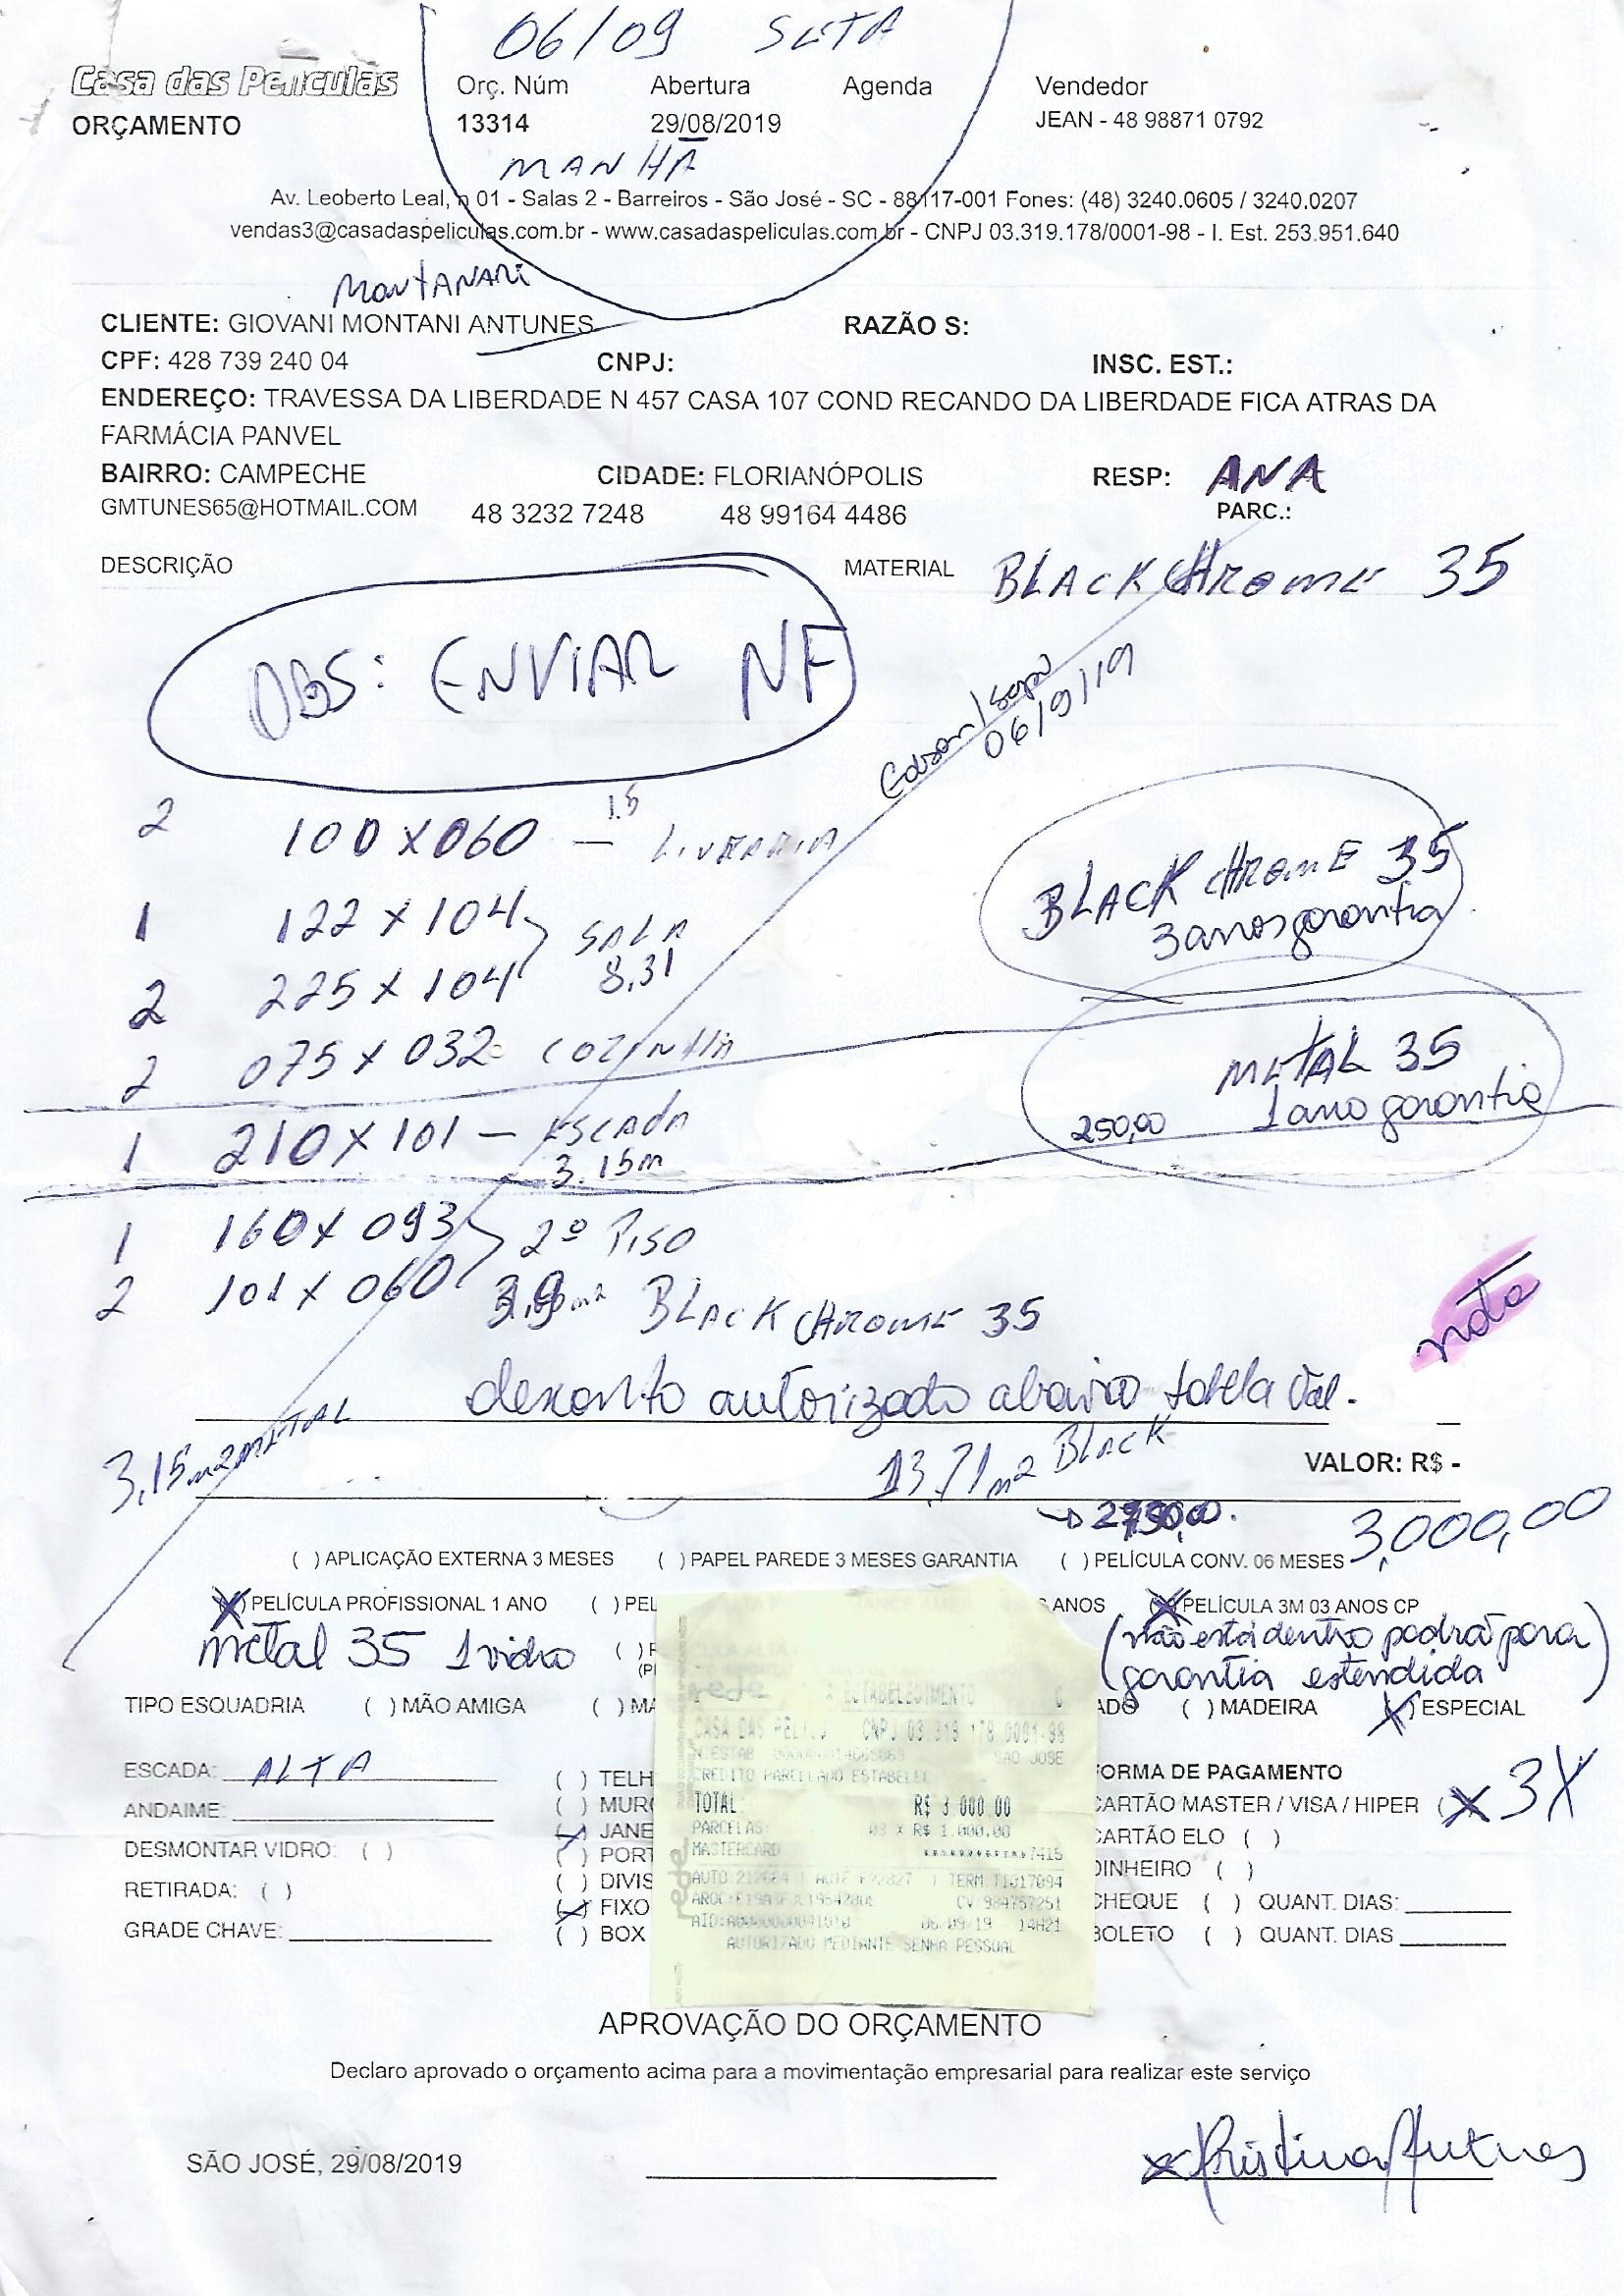 06/09 SEXTA
Casa das Películas
Orç. Núm Abertura Agenda Vendedor
ORÇAMENTO 13314 29/08/2019 JEAN - 48 98871 0792
MANHÃ
Av. Leoberto Leal, n 01 - Salas 2 - Barreiros - São José - SC - 88117-001 Fones: (48) 3240.0605 / 3240.0207
vendas3@casadaspeliculas.com.br - www.casadaspeliculas.com.br - CNPJ 03.319.178/0001-98 - I. Est. 253.951.640
MONTANARI
CLIENTE: GIOVANI MONTANI ANTUNES RAZÃO S:
CPF: 428 739 240 04 CNPJ: INSC. EST.:
ENDEREÇO: TRAVESSA DA LIBERDADE N 457 CASA 107 COND RECANDO DA LIBERDADE FICA ATRAS DA
FARMÁCIA PANVEL
BAIRRO: CAMPECHE CIDADE: FLORIANÓPOLIS RESP: ANA
GMTUNES65@HOTMAIL.COM 48 3232 7248 48 99164 4486 PARC.:
DESCRIÇÃO MATERIAL BLACK CHROME 35
OBS: ENVIAR NF
Edson/
06/9/19
2 100 X 060 — 1.5
1 122 X 104 SALA
2 225 X 104 8,31
BLACK CHROME 35
3 anos garantia
2 075 X 032 COZINHA
METAL 35
250,00 1 ano garantia
1 210 X 101 — ESCADA
3.15m
1 160 X 093 2º PISO
2 101 X 060 BLACK CHROME 35
nota
desconto autorizado abaixo tabela Val.
3,15m2 METAL 13,71m2 BLACK VALOR: R$ -
3,000,00
( ) APLICAÇÃO EXTERNA 3 MESES ( ) PAPEL PAREDE 3 MESES GARANTIA ( ) PELÍCULA CONV. 06 MESES
(X) PELÍCULA PROFISSIONAL 1 ANO ( ) PEL ANOS (X) PELÍCULA 3M 03 ANOS CP
metal 35 1 vidro (não está dentro padrão para
garantia estendida)
TIPO ESQUADRIA ( ) MÃO AMIGA ( ) MA ADO ( ) MADEIRA (X) ESPECIAL
ESCADA: ALTA
ANDAIME:
DESMONTAR VIDRO: ( )
RETIRADA: ( )
GRADE CHAVE:
( ) TELH
( ) MUR
(X) JANE
( ) PORT
( ) DIVIS
(X) FIXO
( ) BOX
ESTABELECIMENTO
CNPJ 03.319.178.0001-98
SAO JOSE
CREDITO PARCELADO ESTABELE
TOTAL: R$ 3.000,00
PARCELAS: 03 X R$ 1.000,00
MASTERCARD ************7415
rede
06/09/19 - 14H21
AUTORIZADO MEDIANTE SENHA PESSOAL
FORMA DE PAGAMENTO
CARTÃO MASTER / VISA / HIPER (X) 3X
CARTÃO ELO ( )
DINHEIRO ( )
CHEQUE ( ) QUANT. DIAS:
BOLETO ( ) QUANT. DIAS
APROVAÇÃO DO ORÇAMENTO
Declaro aprovado o orçamento acima para a movimentação empresarial para realizar este serviço
SÃO JOSÉ, 29/08/2019 x Kristina Antunes